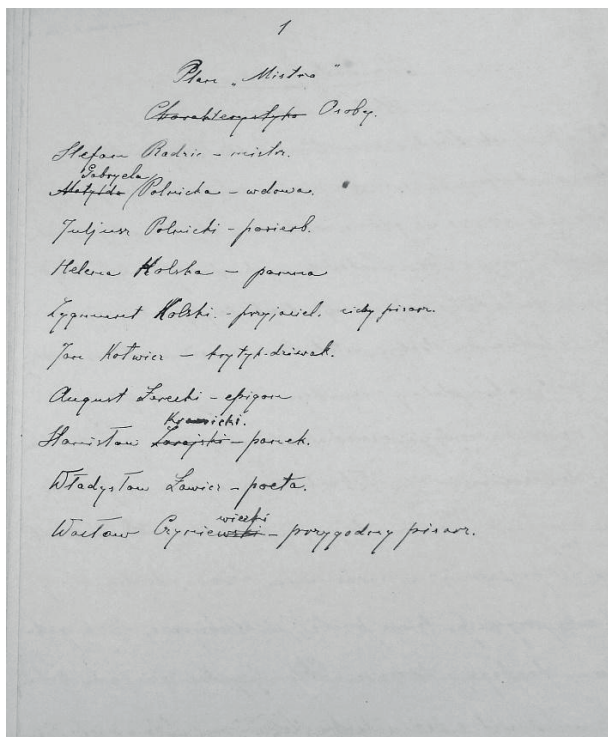 1
Plan „Mistrza"
Charakterystyka Osoby.
Stefan Radzic – mistrz.
Gabryela
Matylda Polnicka – wdowa.
Juljusz Polnicki – pasierb.
Helena Kolska – panna
Zygmunt Kolski. – przyjaciel. pisarz.
Jan Kotwicz – krytyk-dziwak.
August Żarecki – epigon
Kramicki.
Stanisław – panek.
Władysław Ławicz – poeta.
wiecki
Wacław Czyniewski – przygodny pisarz.